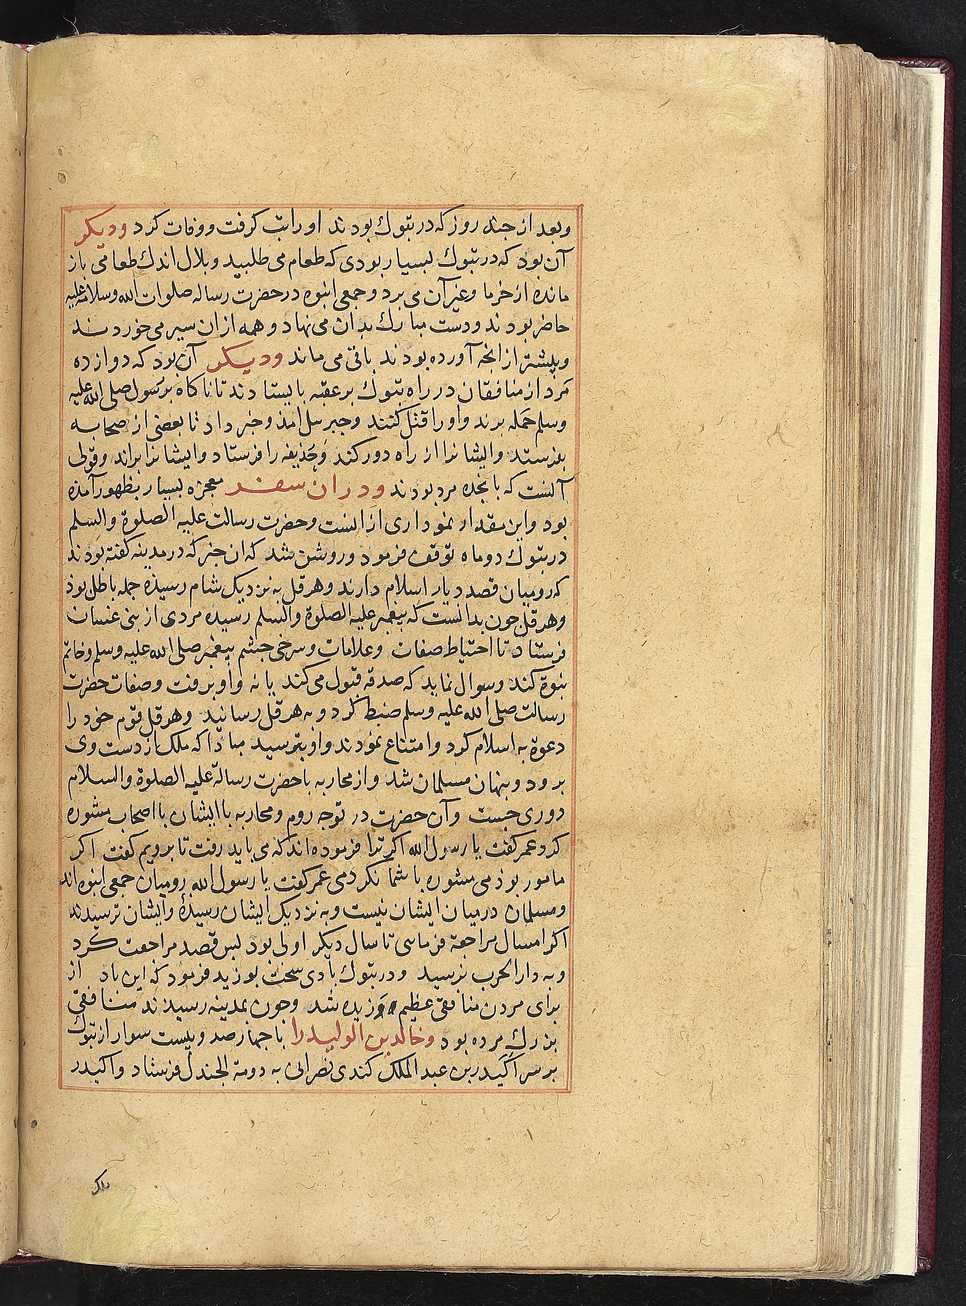 وبعد از چند روز که در تبوک بودند او را تب گرفت و وفات کرد ودیکر
آن بود که در تبوک بسیار بودی که طعام می طلبید و بلال اندک طعامی باز
مانده از خرما وغیر آن می برد و جمعی انبوه در حضرت رسالة صلوات الله وسلامه علیه
حاضر بودند و دست مبارک بدان می نهاد و همه از ان سیر می خوردند
و بیشتر از انچه آورده بودند باقی می ماند ودیکر آن بود که دوازده
مرد از منافقان در راه تبوک بر عقبه بایستادند تا ناکاه بر رسول صلی الله علیه
وسلم حمله برند و او را قتل کنند و جبرسل امد و خبر داد تا بعضی از صحابه
بفرستد و ایشانرا از راه دور کند و حذیفه را فرستاد و ایشانرا براند و قولی
آنست که پانجده مرد بودند ودران سفر معجزه بسیار بظهور آمده
بود و این مقدار نموداری از انست و حضرت رسالت علیه الصلوة والسلم
در تبوک دو ماه توقف فرمود و روشن شد که ان خبر که در مدینه کفته بودند
که رومیان قصد دیار اسلام دارند و هرقل به نزدیک شام رسیده جمله باطل بود
و هرقل چون بدانست که پیغمبر علیه الصلوة والسلم رسیده مردی از بنی غسان
فرستاد تا احتیاط صفات و علامات و سرخی چشم پیغمبر صلی الله علیه وسلم و خاتم
نبوة کند و سوال نماید که صدقه قبول می کند یا نه و او برفت و صفات حضرت
رسالت صلی الله علیه وسلم ضبط کرد و به هرقل رسانید و هرقل قوم خود را
دعوة به اسلام کرد و امتناع نمودند و او بترسید مبادا که ملک از دست وی
برود و پنهان مسلمان شد و از محاربه با حضرت رسالة علیه الصلوة والسلام
دوری جست و آن حضرت در توجه روم و محاربه با ایشان با اصحاب مشوره
کرد عمر کفت یا رسول الله اکر ترا فرموده اند که می باید رفت تا برویم کفت اکر
مامور بودمی مشوره با شما نکردمی عمر کفت یا رسول الله رومیان جمعی انبوه اند
و مسلمان در میان ایشان نیست و به نزدیک ایشان رسیدهٔ و ایشان ترسیدند
اکر امسال مراجعة فرمایی تا سال دیکر اولی بود پس قصد مراجعت کرد
و به دار الحرب نرسید و در تبوک بادی سخت بوزید فرمود که این باد از
برای مردن منافقی عظیم وزیده شد و چون بمدینه رسیدند منافقی
بزرک مرده بود و خالد بن الولید را با چهار صد و بیست سوار از تبوک
بر سر اکیدر بن عبد الملک کندی نصرانی به دومة الجندل فرستاد و اکیدر
ملک